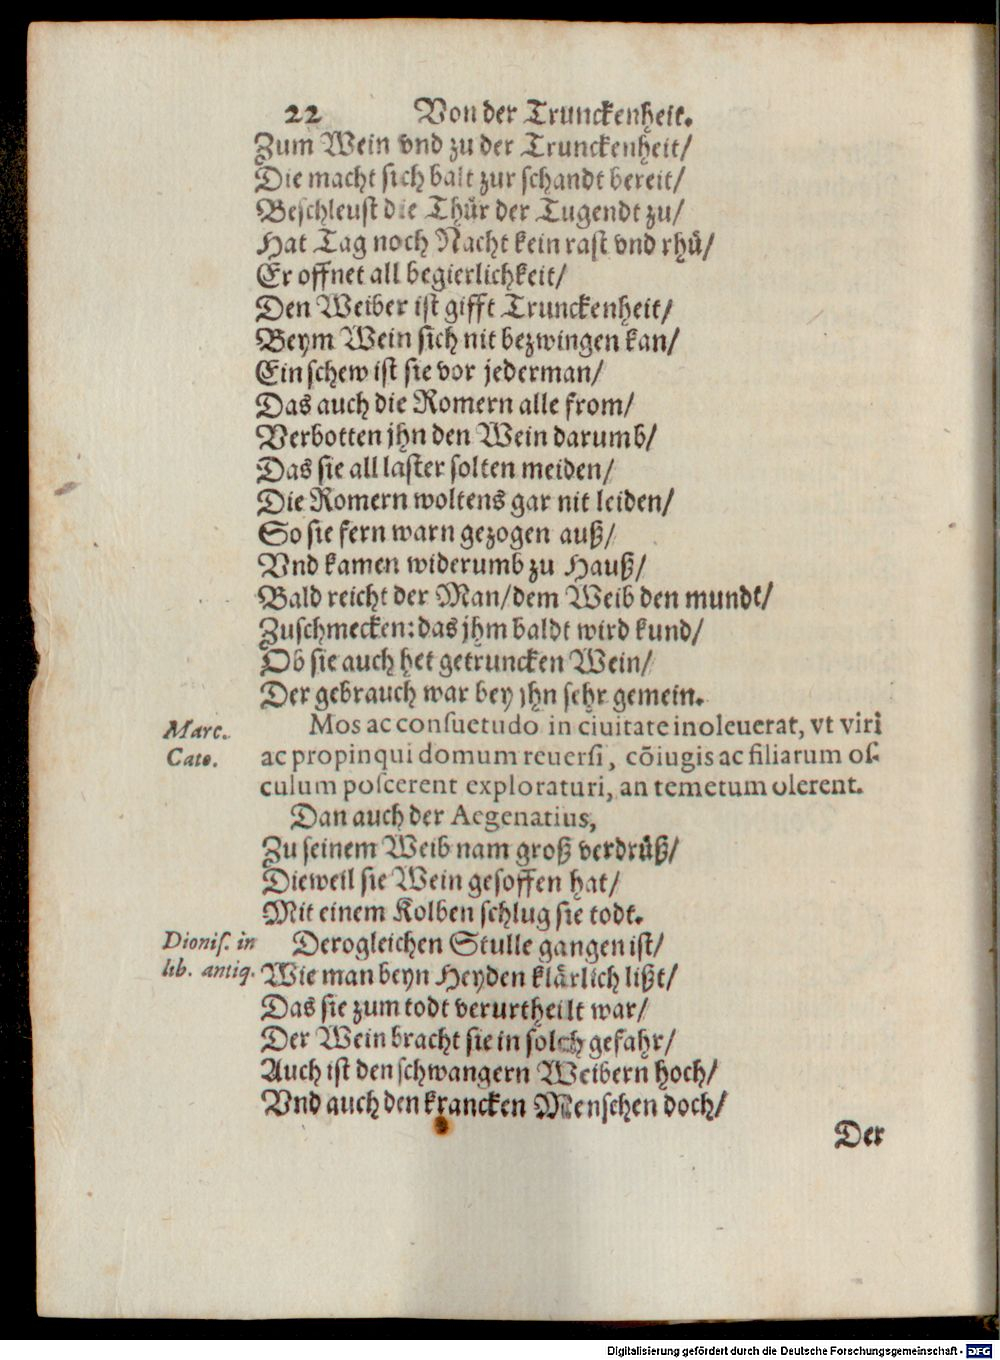 22 Von der Trunckenheit.
Zum Wein vnd zu der Trunckenheit/
Die macht sich balt zur schandt bereit/
Beschleust die Thür der Tugendt zu/
Hat Tag noch Nacht kein rast vnd rhü/
Er offnet all begierlichkeit/
Den Weiber ist gifft Trunckenheit/
Beym Wein sich nit bezwingen kan/
Ein schew ist sie vor jederman/
Das auch die Romern alle from/
Verbotten jhn den Wein darumb/
Das sie all laster solten meiden/
Die Romern woltens gar nit leiden/
So sie fern warn gezogen auß/
Vnd kamen widerumb zu Hauß/
Bald reicht der Man/dem Weib den mundt/
Zuschmecken: das jhm baldt wird kund/
Ob sie auch het getruncken Wein/
Der gebrauch war bey jhn sehr gemein.
Marc. Mos ac consuetudo in ciuitate inoleuerat, vt viri
Cato. ac propinqui domum reuersi, cõiugis ac filiarum os-
culum poscerent exploraturi, an temetum olerent.
Dan auch der Aegenatius,
Zu seinem Weib nam groß verdrüß/
Dieweil sie Wein gesoffen hat/
Mit einem Kolben schlug sie todt.
Dionis. in Derogleichen Stulle gangen ist/
lib. antiq. Wie man beyn Heyden klärlich lißt/
Das sie zum todt verurtheilt war/
Der Wein bracht sie in solch gefahr/
Auch ist den schwangern Weibern hoch/
Vnd auch den krancken Menschen doch/
Der
Digitalisierung gefördert durch die Deutsche Forschungsgemeinschaft - DFG